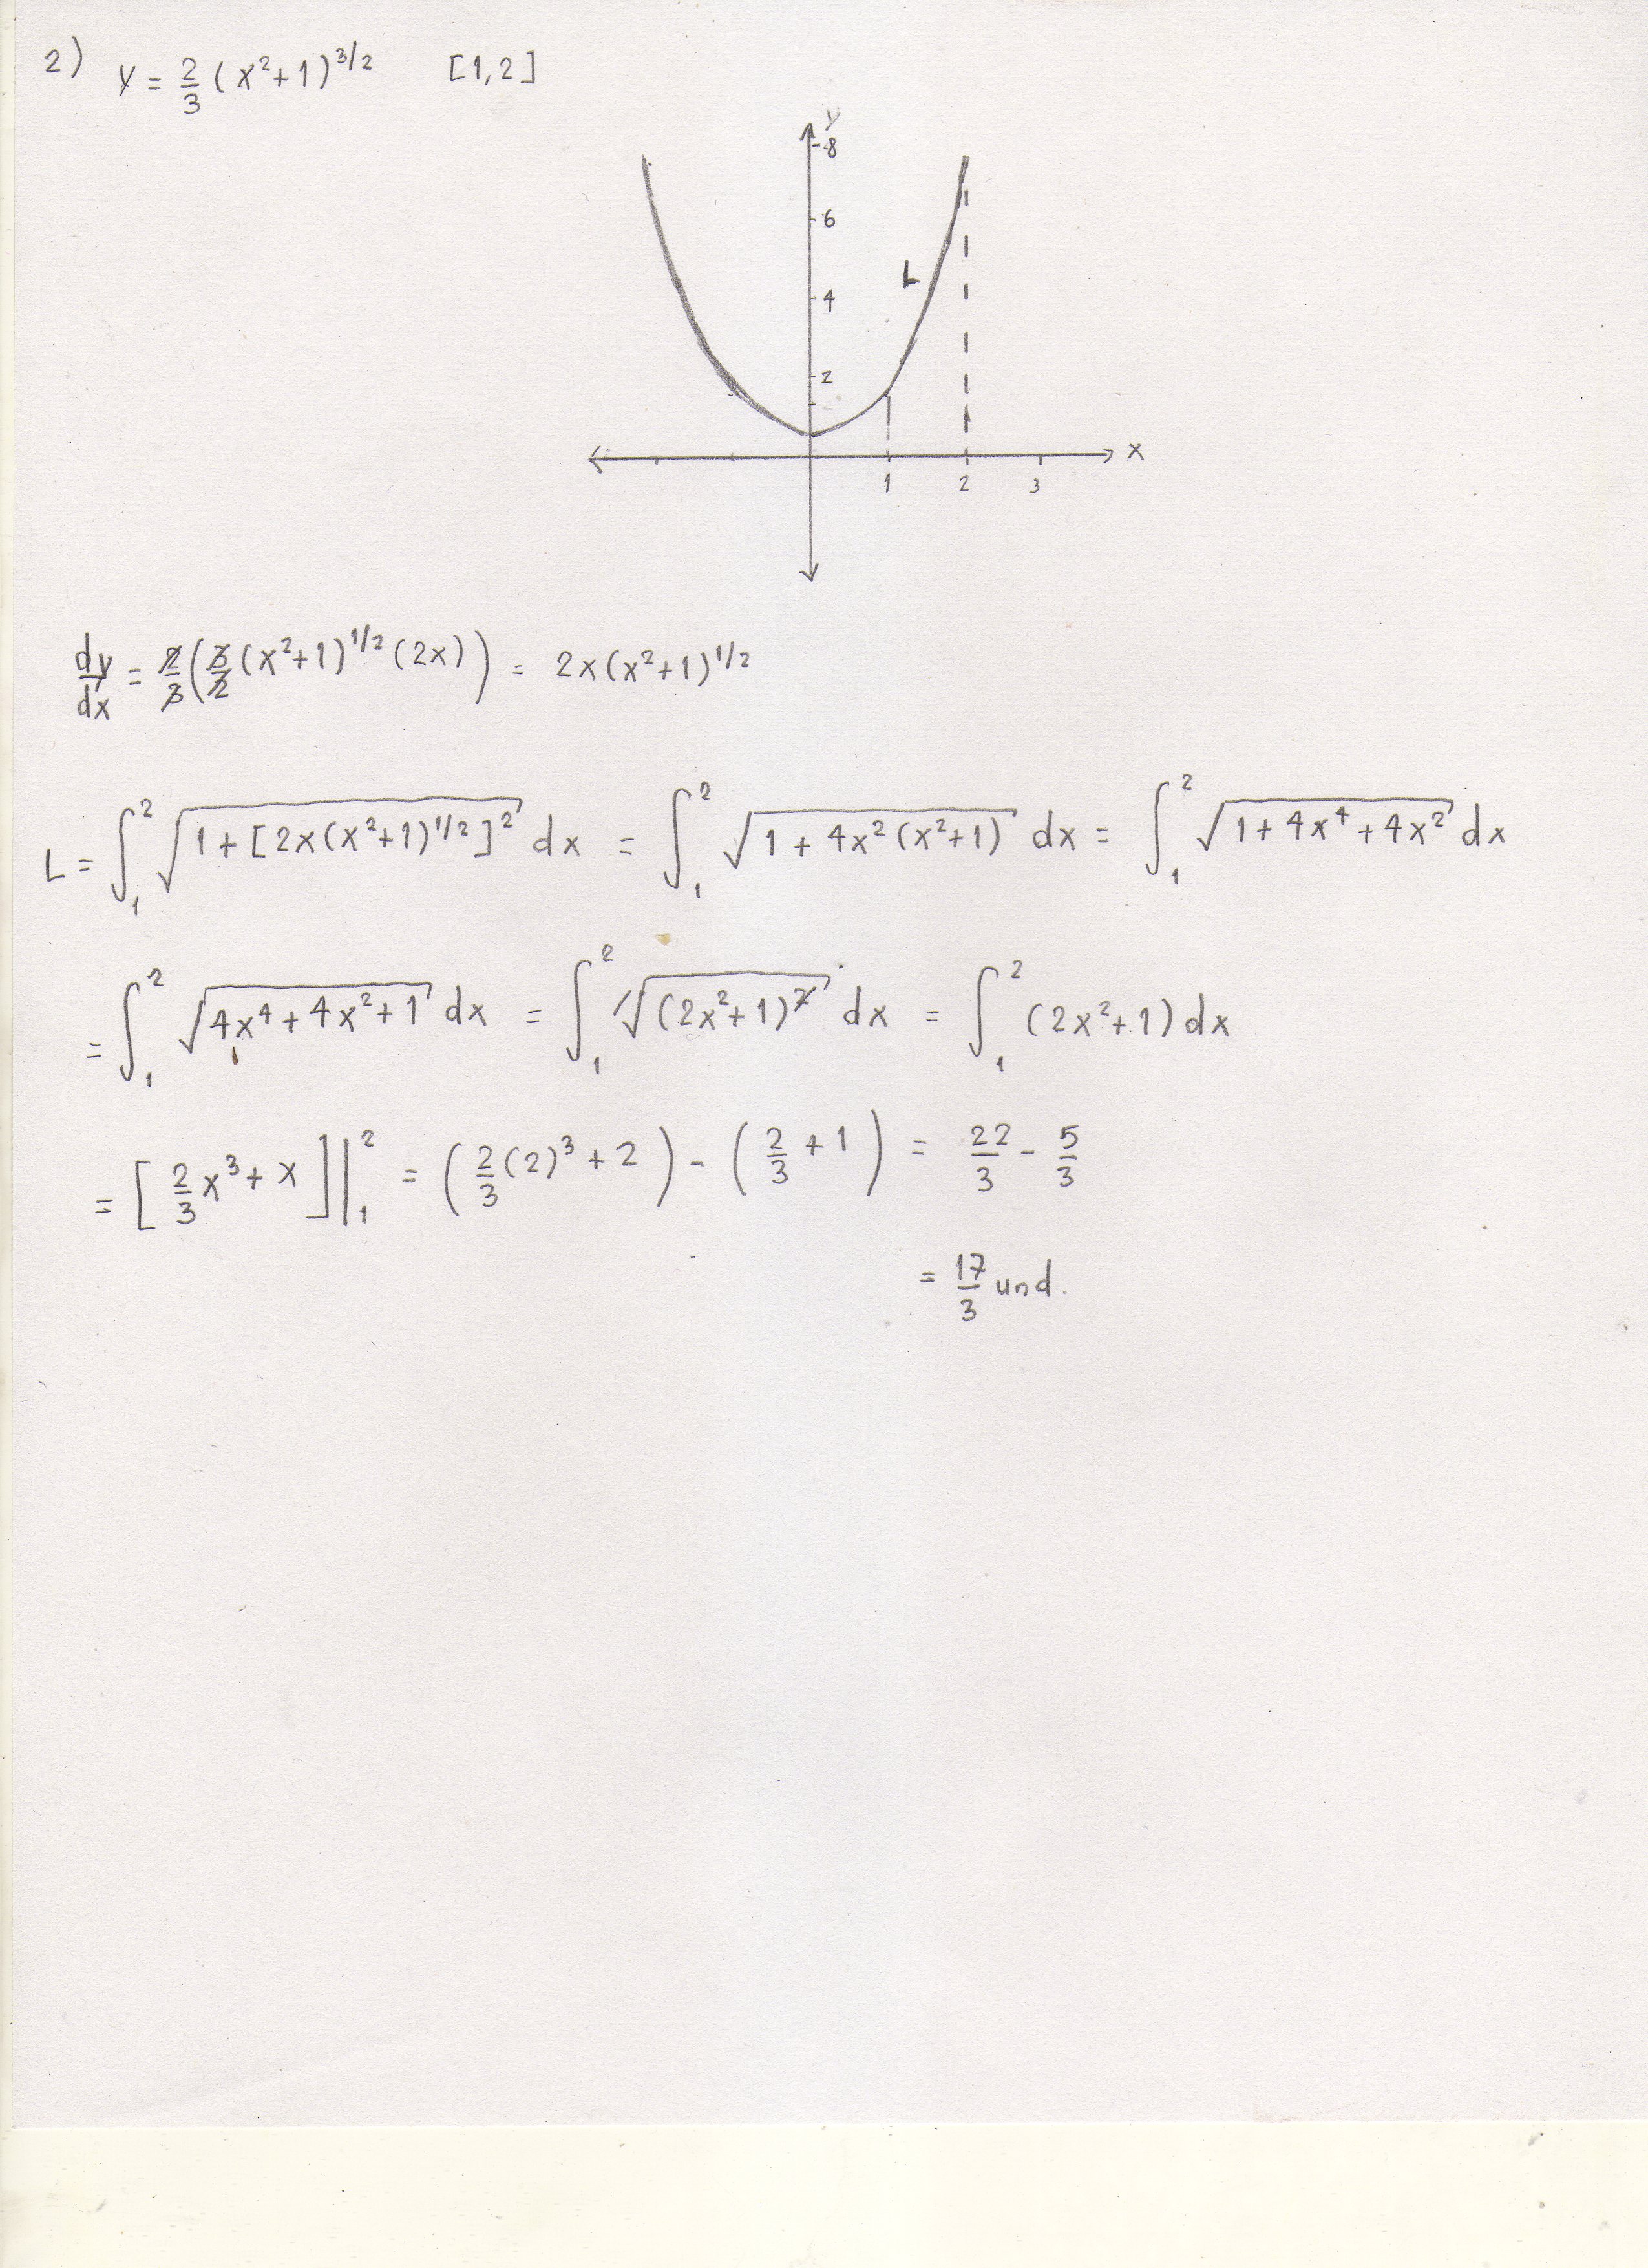 2) y = 2/3 (x²+1)^3/2 [1,2]
y
8
6
L
4
2
x
1 2 3
dy/dx = 2/3 (3/2 (x²+1)^1/2 (2x)) = 2x(x²+1)^1/2
L = ∫₁² √(1+[2x(x²+1)^1/2]²) dx = ∫₁² √(1+4x²(x²+1)) dx = ∫₁² √(1+4x⁴+4x²) dx
= ∫₁² √(4x⁴+4x²+1) dx = ∫₁² √((2x²+1)²) dx = ∫₁² (2x²+1) dx
= [2/3 x³ + x]|₁² = (2/3 (2)³ + 2) - (2/3 + 1) = 22/3 - 5/3
= 17/3 und.